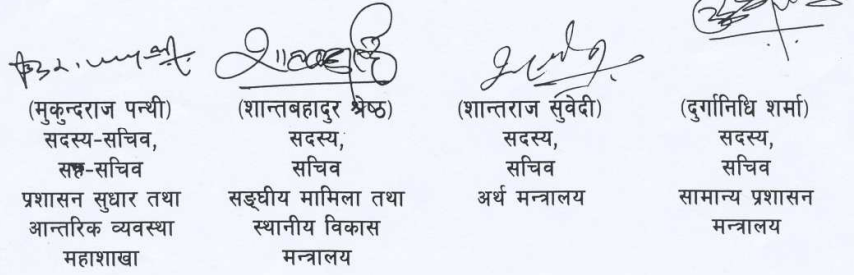 (मुकुन्दराज पन्थी)
सदस्य-सचिव,
सह-सचिव
प्रशासन सुधार तथा
आन्तरिक व्यवस्था
महाशाखा
(शान्तबहादुर श्रेष्ठ)
सदस्य,
सचिव
सङ्घीय मामिला तथा
स्थानीय विकास
मन्त्रालय
(शान्तराज सुवेदी)
सदस्य,
सचिव
अर्थ मन्त्रालय
(दुर्गानिधि शर्मा)
सदस्य,
सचिव
सामान्य प्रशासन
मन्त्रालय